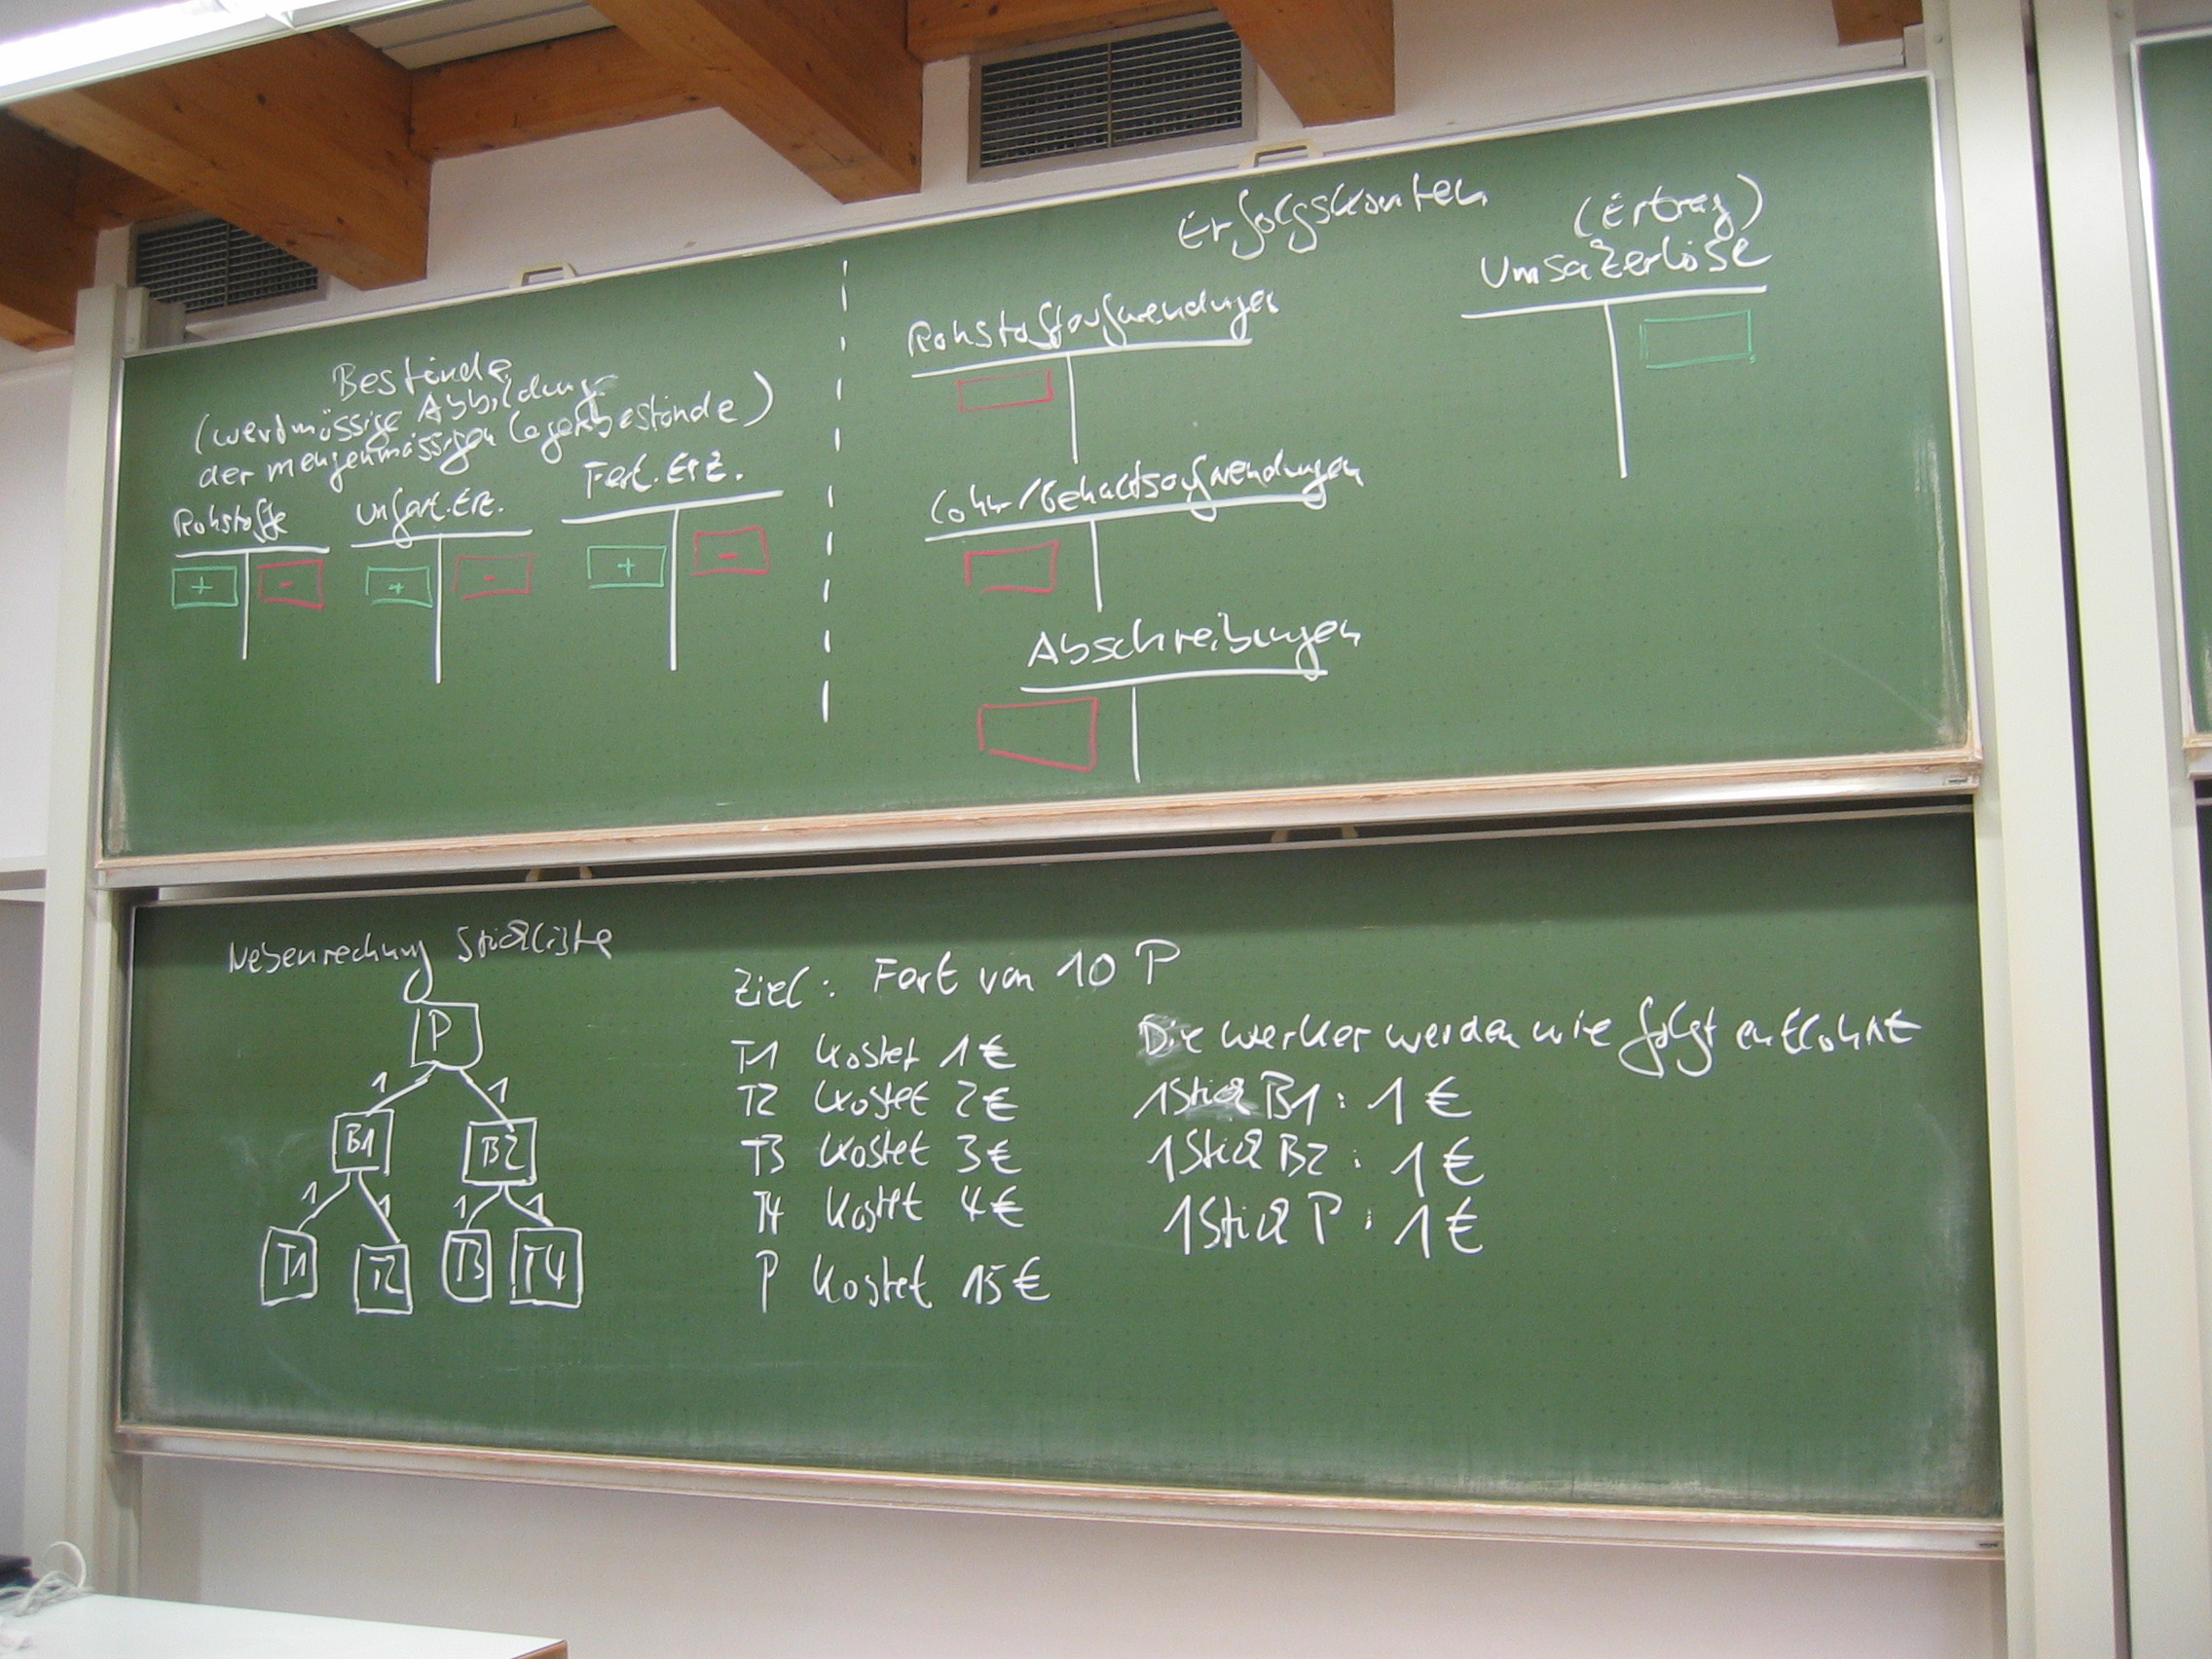 Erfolgskonten
(Ertrag)
Umsatzerlöse
Bestände
(wertmässige Abbildung
der mengenmässigen Lagerbestände)
Rohstoffe
unfert. Erz.
Fert. Erz.
+ -
+ -
+ -
Rohstoffaufwendungen
Lohn-/Gehaltsaufwendungen
Abschreibungen
Nebenrechnung Stückliste
P
1 1
B1 B2
1 1 1 1
T1 T2 T3 T4
Ziel: Fert von 10 P
T1 kostet 1€
T2 kostet 2€
T3 kostet 3€
T4 kostet 4€
P kostet 15€
Die Werker werden wie folgt entlohnt
1 Stück B1: 1€
1 Stück B2: 1€
1 Stück P: 1€